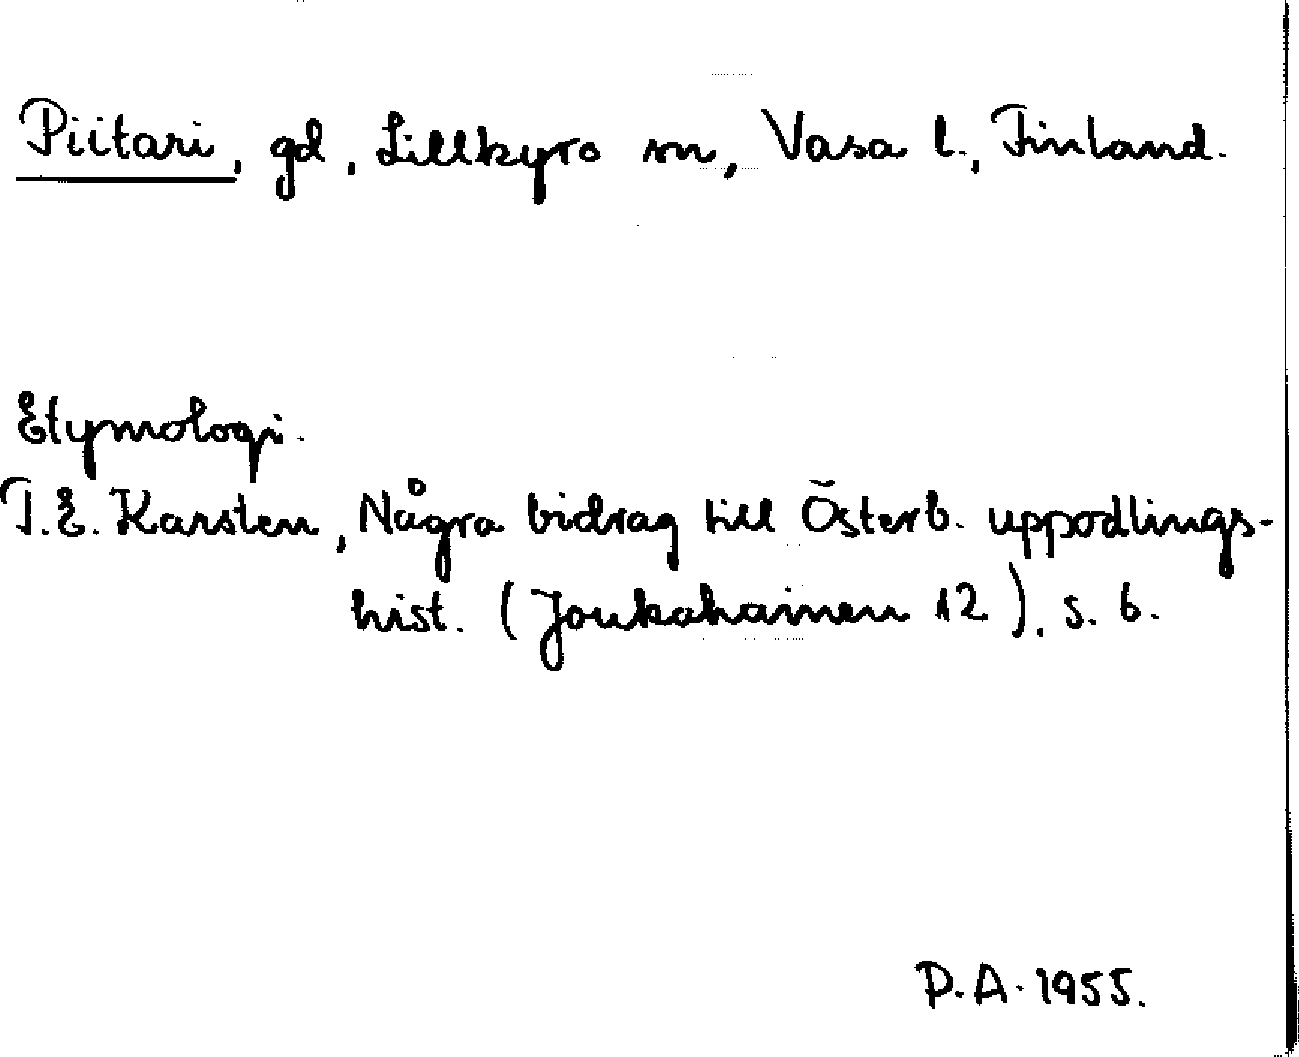 Piitari, gd, Lillkyro sn, Vasa l., Finland.
Etymologi.
T.E. Karsten, Några bidrag till Österb. uppodlings-
hist. (Joukahainen 12), s. 6.
P.A. 1955.